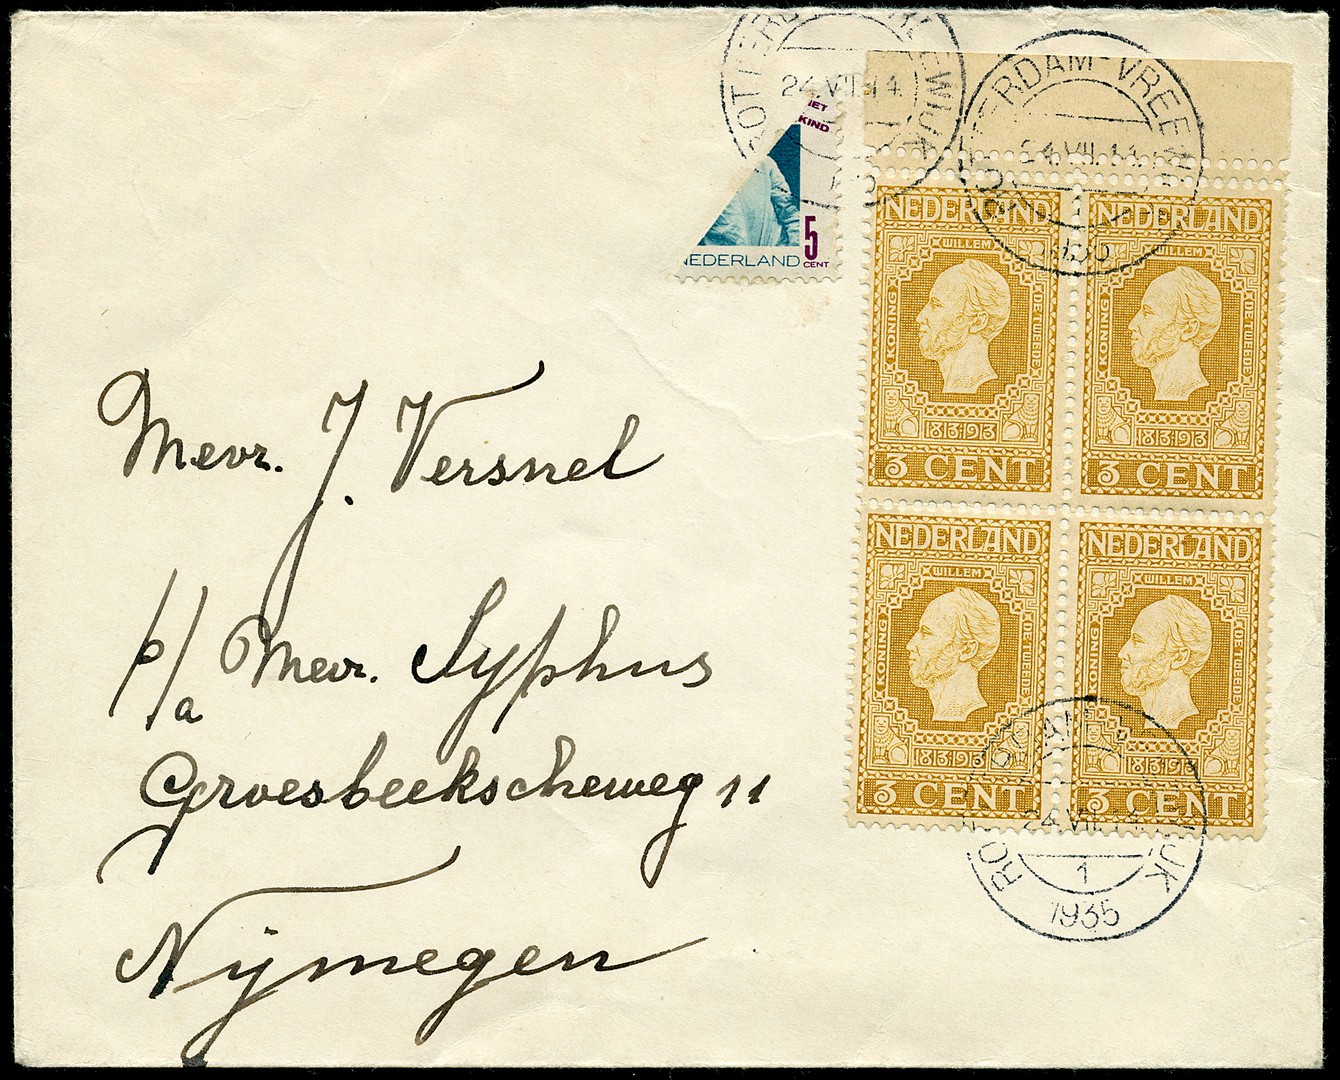 ROTTERDAM-VREEWIJK
24.VII.14.
1935
IET
KIND
5
CENT
NEDERLAND
ROTTERDAM-VREEWIJK
24.VII.14.
1
1935
NEDERLAND
WILLEM
KONING
DE TWEEDE
1813 1913
3 CENT
NEDERLAND
WILLEM
KONING
DE TWEEDE
1813 1913
3 CENT
NEDERLAND
WILLEM
KONING
DE TWEEDE
1813 1913
3 CENT
NEDERLAND
WILLEM
KONING
DE TWEEDE
1813 1913
3 CENT
ROTTERDAM-VREEWIJK
24.VII.14.
1
1935
Mevr. J. Versnel
p/a Mevr. Syphus
Groesbeekscheweg 11
Nijmegen